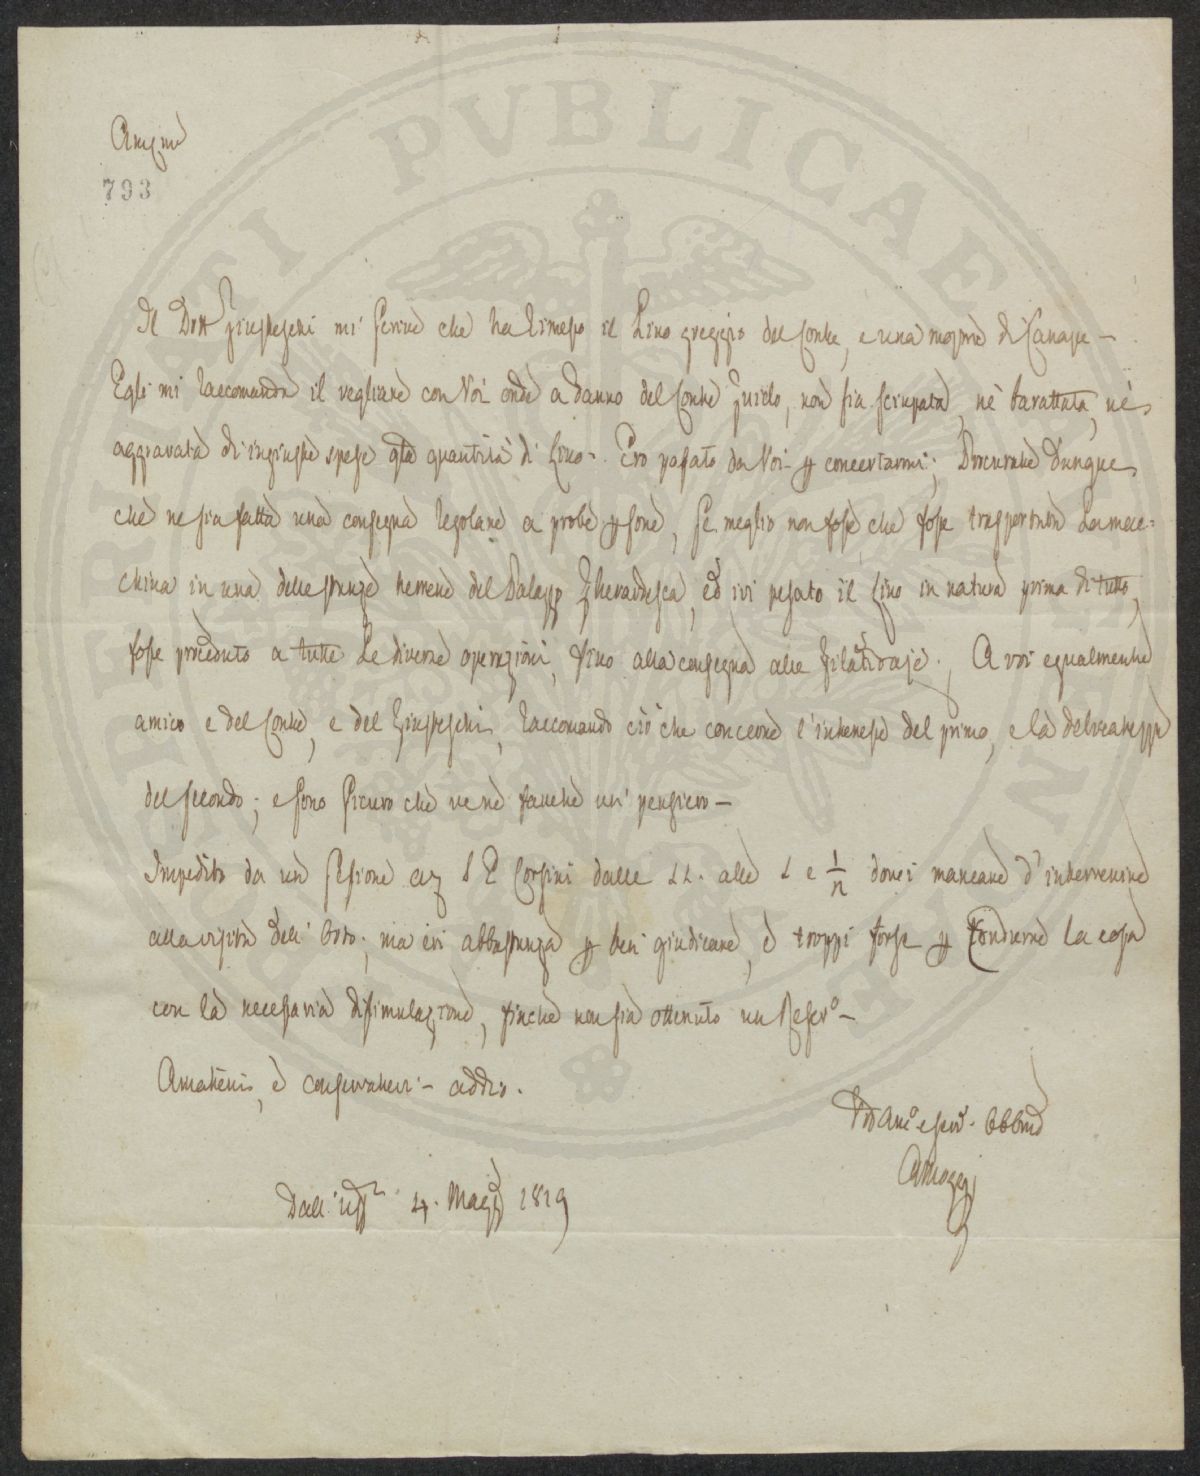 Amicmo
793
Il Dott Giusteschi mi scrive che ha rimesso il Lino greggio del Conte, e una mostra di Canape –
Egli mi raccomanda il vegliare con Voi onde a danno del Conte Guido, non sia sciupata, nè barattata, nè
aggravata di ingiuste spese qta quantità di Lino –. Ero passato da Voi p concertarmi; Procurate dunque
che ne sia fatta una consegna regolare a probe psone, se meglio non fosse che fosse trasportata la mac=
china in una delle stanze terrene del Palazzo Gherardesca, ed ivi pesato il Lino in natura prima di tutto,
fosse proceduto a tutte le diverse operazioni, fino alla consegna alle filatoraje. A voi egualmente
amico e del Conte, e del Giusteschi, raccomando ciò che concerne l'interesse del primo, e la delicatezza
del secondo; e sono sicuro che ve ne farete un' pensiero –
Impedito da un sessione da S E Corsini dalle 11. alle 1 e 1/2 dovei mancare d'intervenire
alla visita dell' Orto; ma eri abbastanza p ben giudicare, e troppi forse p condurre la cosa
con la necessaria dissimulazione, finche non sia ottenuto un Rescro –
Amatemi, e conservatevi – addio.
Vro Amo e servo. Obbmo
AMozzi
Dall' Uffo 4. Maggo 1819